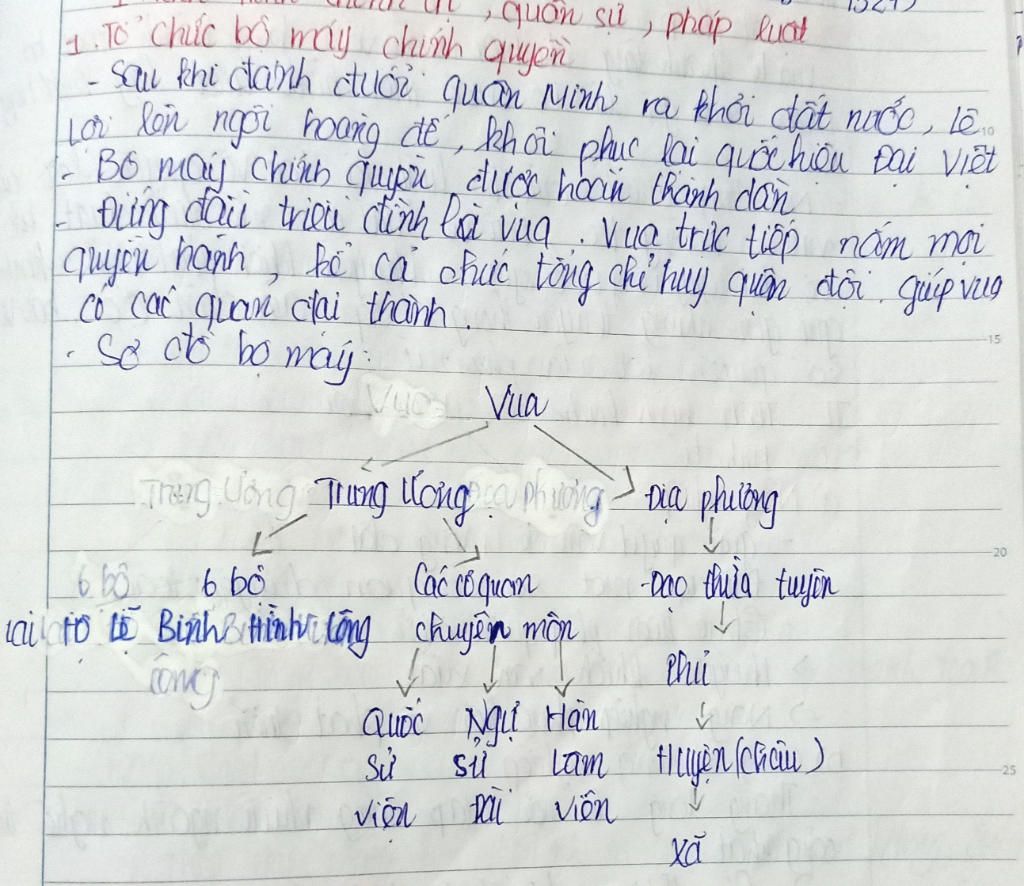 , quân sự, pháp luật
1. Tổ chức bộ máy chính quyền
- Sau khi đánh đuổi quân Minh ra khỏi đất nước, Lê
Lợi lên ngôi hoàng đế, khôi phục lại quốc hiệu Đại Việt
- Bộ máy chính quyền được hoàn thành dần
- Đứng đầu triều đình là vua. Vua trực tiếp nắm mọi
quyền hành, kể cả chức tổng chỉ huy quân đội. giúp vua
có các quan đại thành.
- Sơ đồ bộ máy:
Vua
Trung Ương Địa phương
6 bộ Các cơ quan Đạo thừa tuyên
Lại Hộ Lễ Binh Hình Công chuyên môn
Phủ
Quốc Ngự Hàn
Sử sử Lâm Huyện (châu)
viện Đài viện
Xã